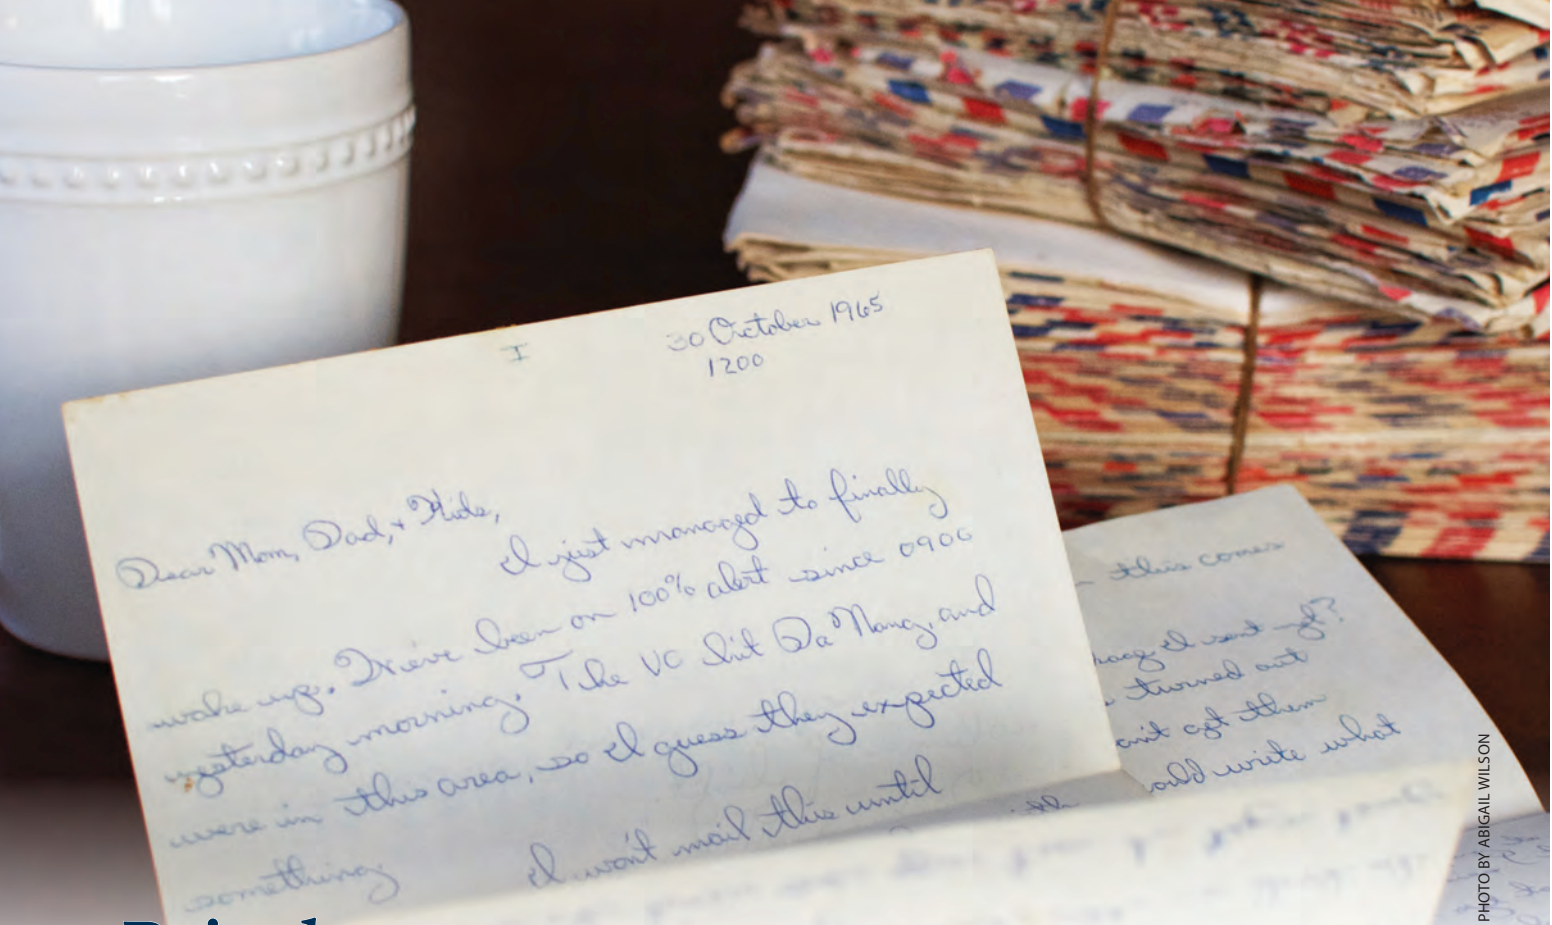 I
30 October 1965
1200
Dear Mom, Dad, + Kids,
I just managed to finally
wake up. We've been on 100% alert since 0900
yesterday morning. The VC hit Da Nang, and
were in this area, so I guess they expected
something.
I won't mail this until
this comes
I sent yet?
turned out
can't get them
write what
PHOTO BY ABIGAIL WILSON